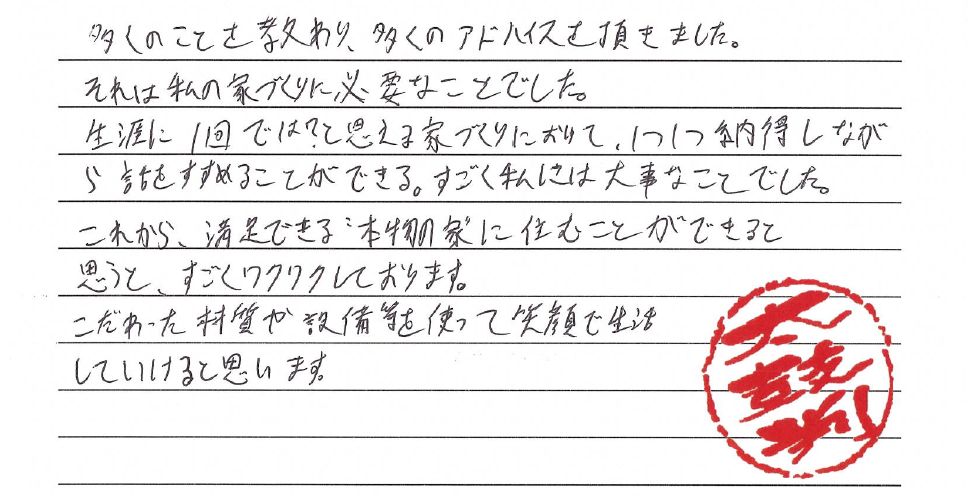 多くのことを教わり、多くのアドバイスを頂きました。
それは私の家づくりに必要なことでした。
生涯に1回では?と思える家づくりにおいて、1つ1つ納得しなが
ら話をすすめることができる。すごく私には大事なことでした。
これから、満足できる"本物の家"に住むことができると
思うと、すごくワクワクしております。
こだわった材質や設備等を使って笑顔で生活
していけると思います。
大
鼓